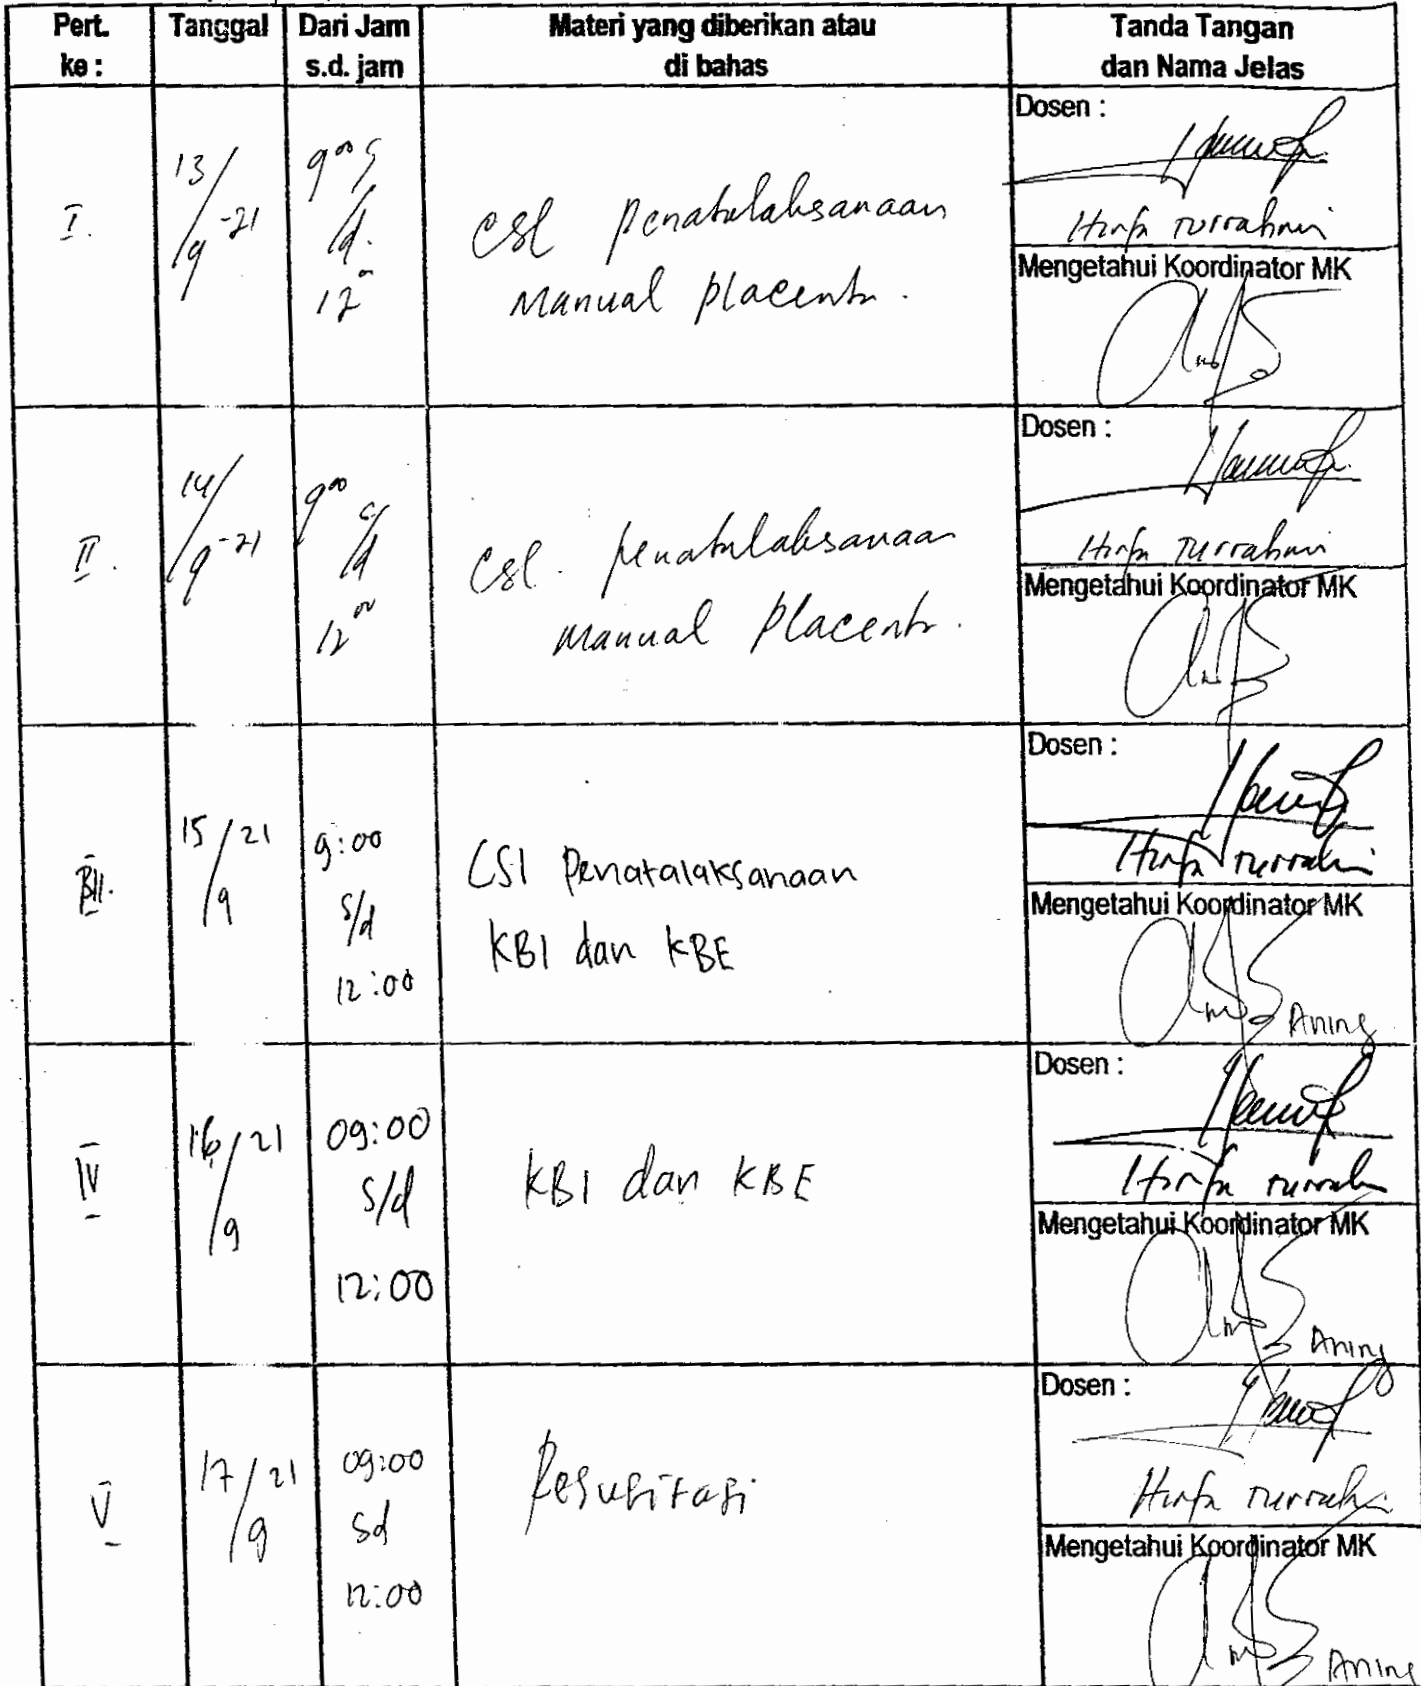 Pert. ke :
Tanggal
Dari Jam s.d. jam
Materi yang diberikan atau di bahas
Tanda Tangan dan Nama Jelas
I.
13/9-21
9⁰⁰ s/d. 12⁰⁰
csl penatalaksanaan
manual placenta.
Dosen :
Hirfa turrahmi
Mengetahui Koordinator MK
II.
14/9-21
9⁰⁰ s/d 12⁰⁰
csl. penatalaksanaan
manual placenta.
Dosen :
Hirfa turrahmi
Mengetahui Koordinator MK
III.
15/9 21
9:00
s/d
12:00
CSl Penatalaksanaan
KBI dan KBE
Dosen :
Hirfa turrahmi
Mengetahui Koordinator MK
Aning
IV
16/9 21
09:00
s/d
12:00
KBI dan KBE
Dosen :
Hirfa turrahmi
Mengetahui Koordinator MK
Aning
V
17/9 21
09:00
sd
12:00
Resusitasi
Dosen :
Hirfa turrahmi
Mengetahui Koordinator MK
Aning